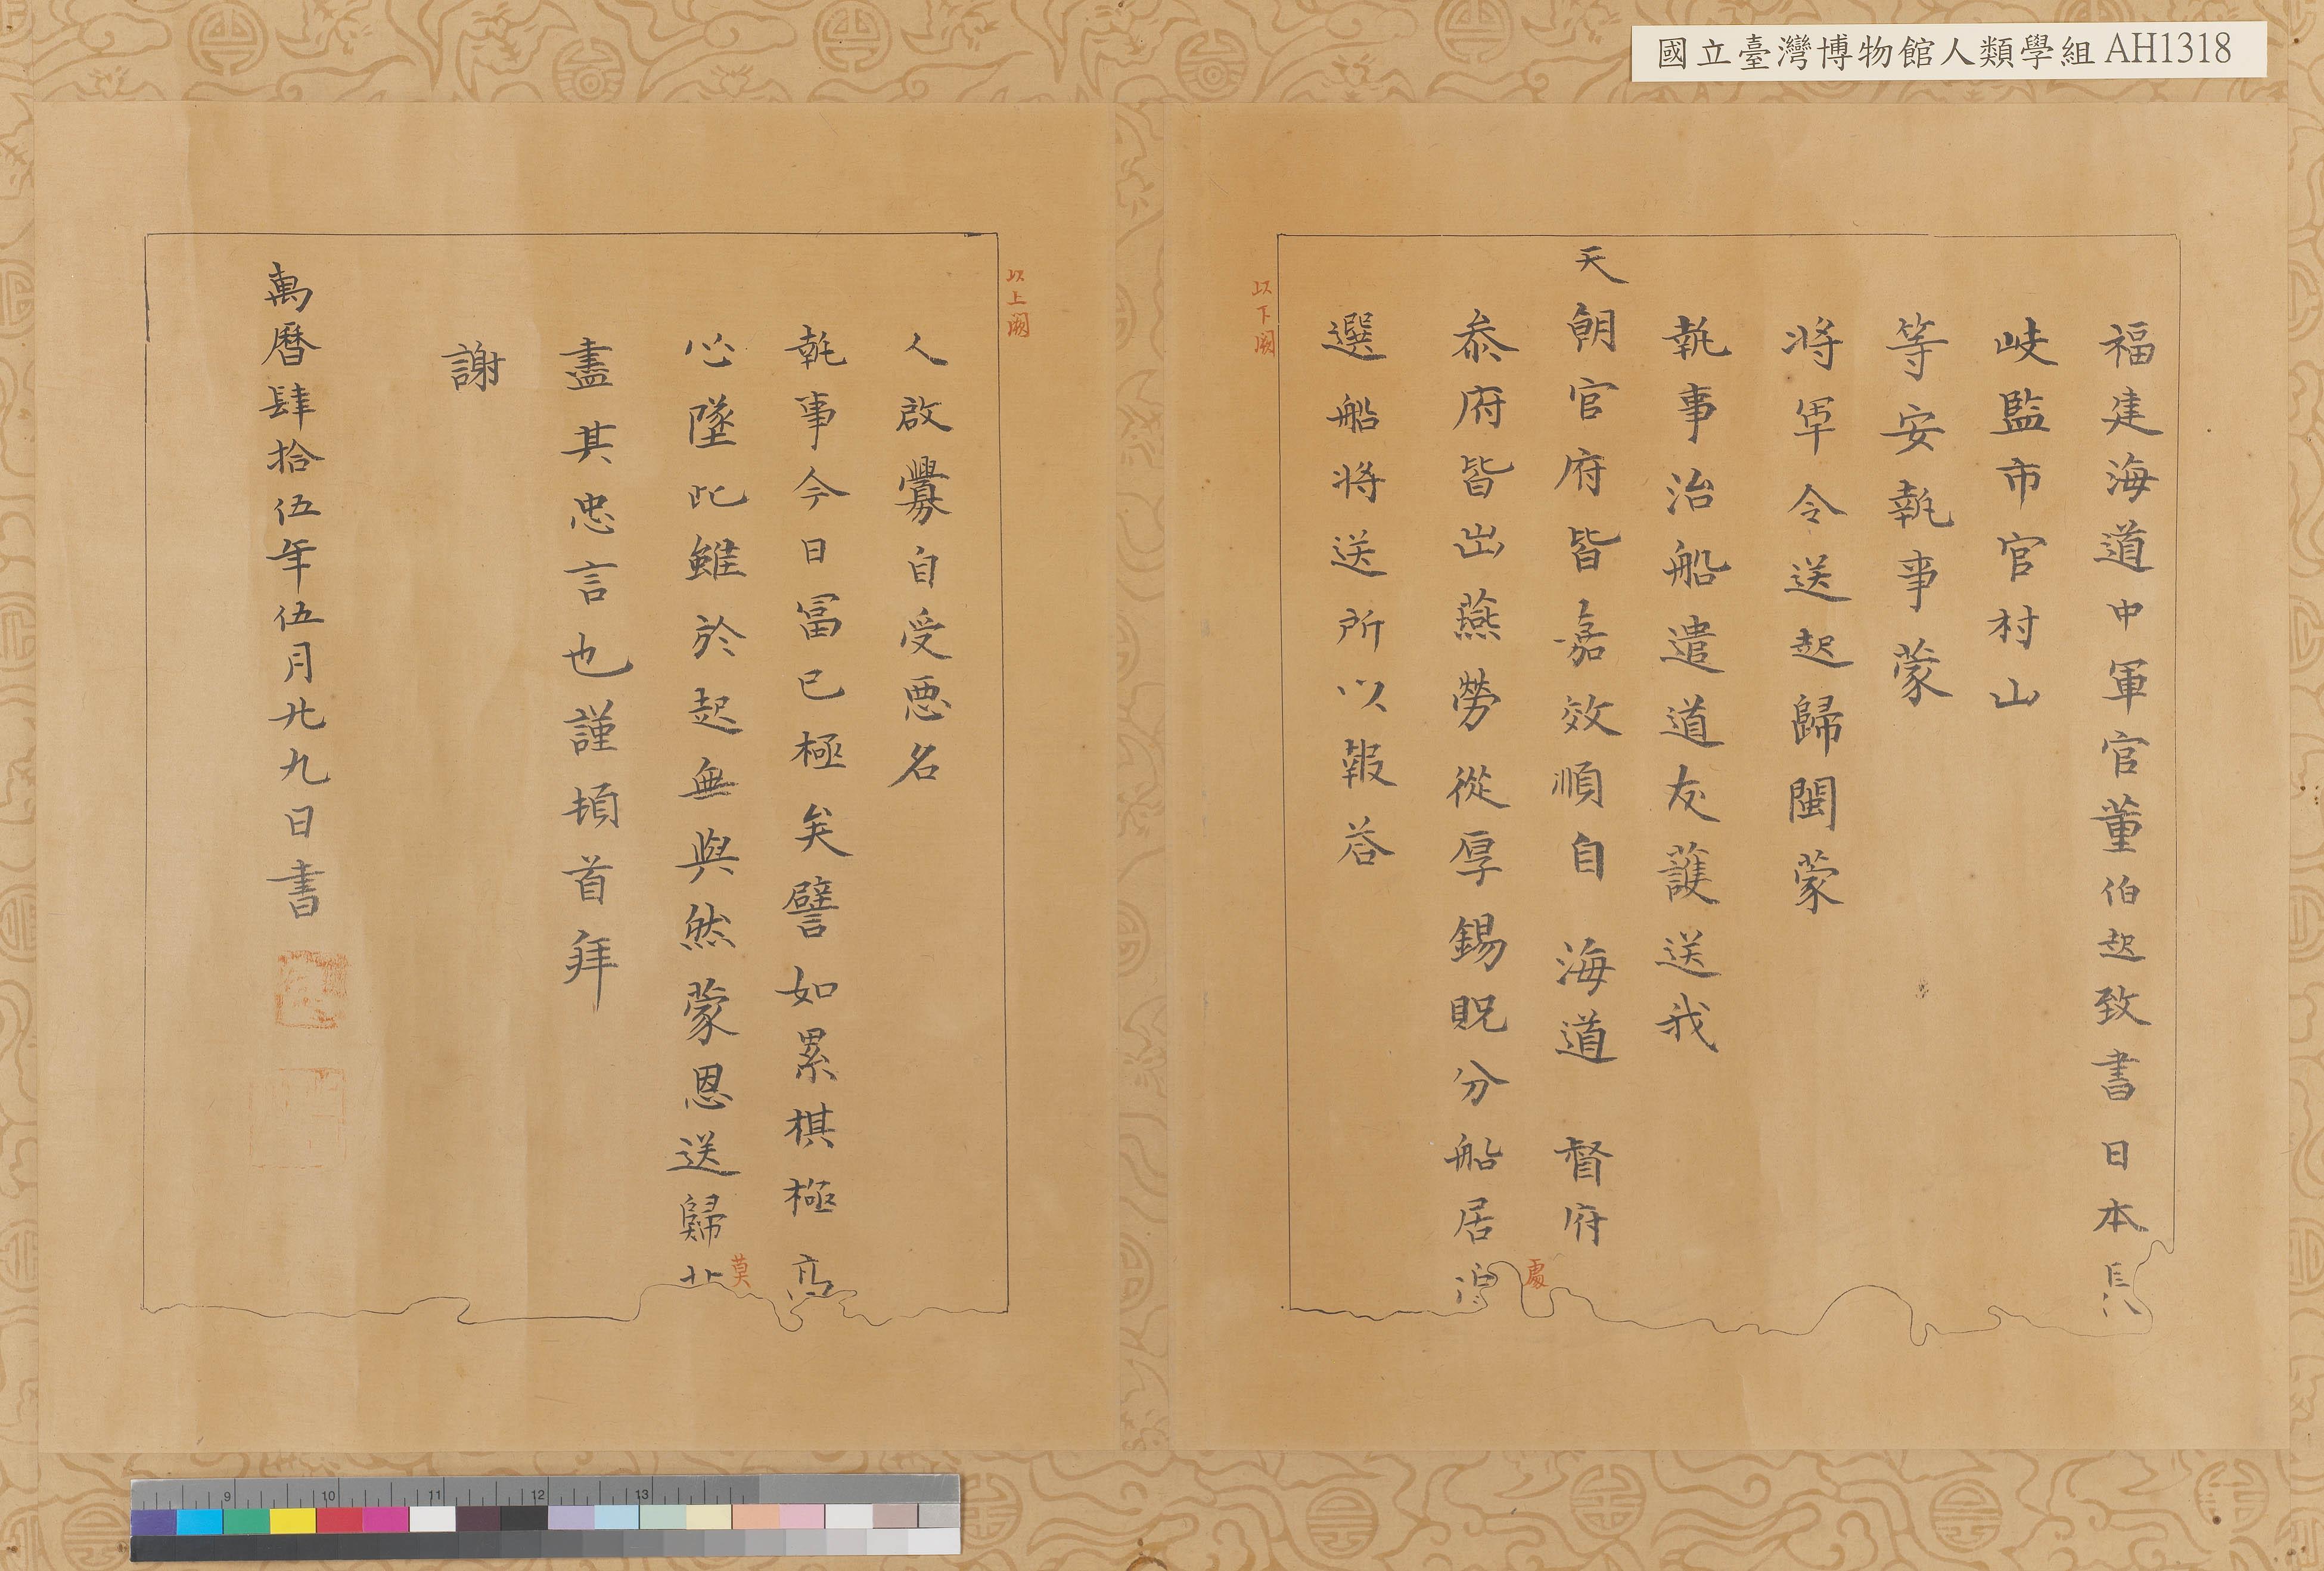 國立臺灣博物館人類學組 AH1318
福建海道中軍官董伯起致書日本長
岐監市官村山
等安執事蒙
將軍令送起歸閩蒙
執事治船遣道友護送我
天朝官府皆嘉效順自海道督府
叅府皆出燕勞從厚錫貺分船居
處
選船將送所以報荅
以下闕
以上闕
人啟釁自受惡名
執事今日冨已極矣譬如累棋極高
心墜此雖於起無與然蒙恩送歸
莫
盡其忠言也謹頓首拜
謝
萬曆肆拾伍年伍月廿九日書
9 10 11 12 13